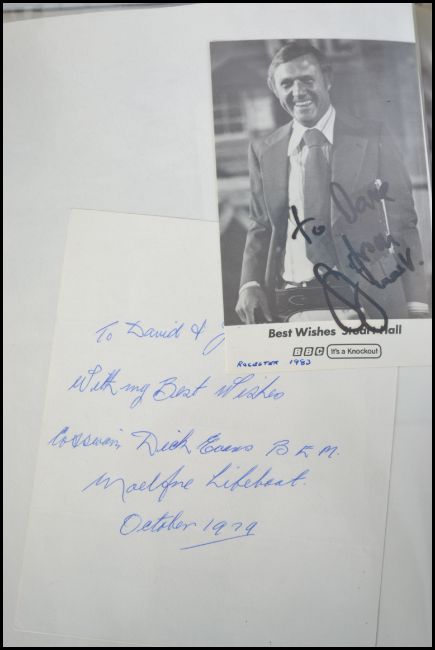 to Dave
from
Stuart
Best Wishes Stuart Hall
BBC It's a Knockout
ROCESTER 1983
To David &
With my Best Wishes
Coxswain Dick Evans B E M.
Moelfre Lifeboat.
October 1979